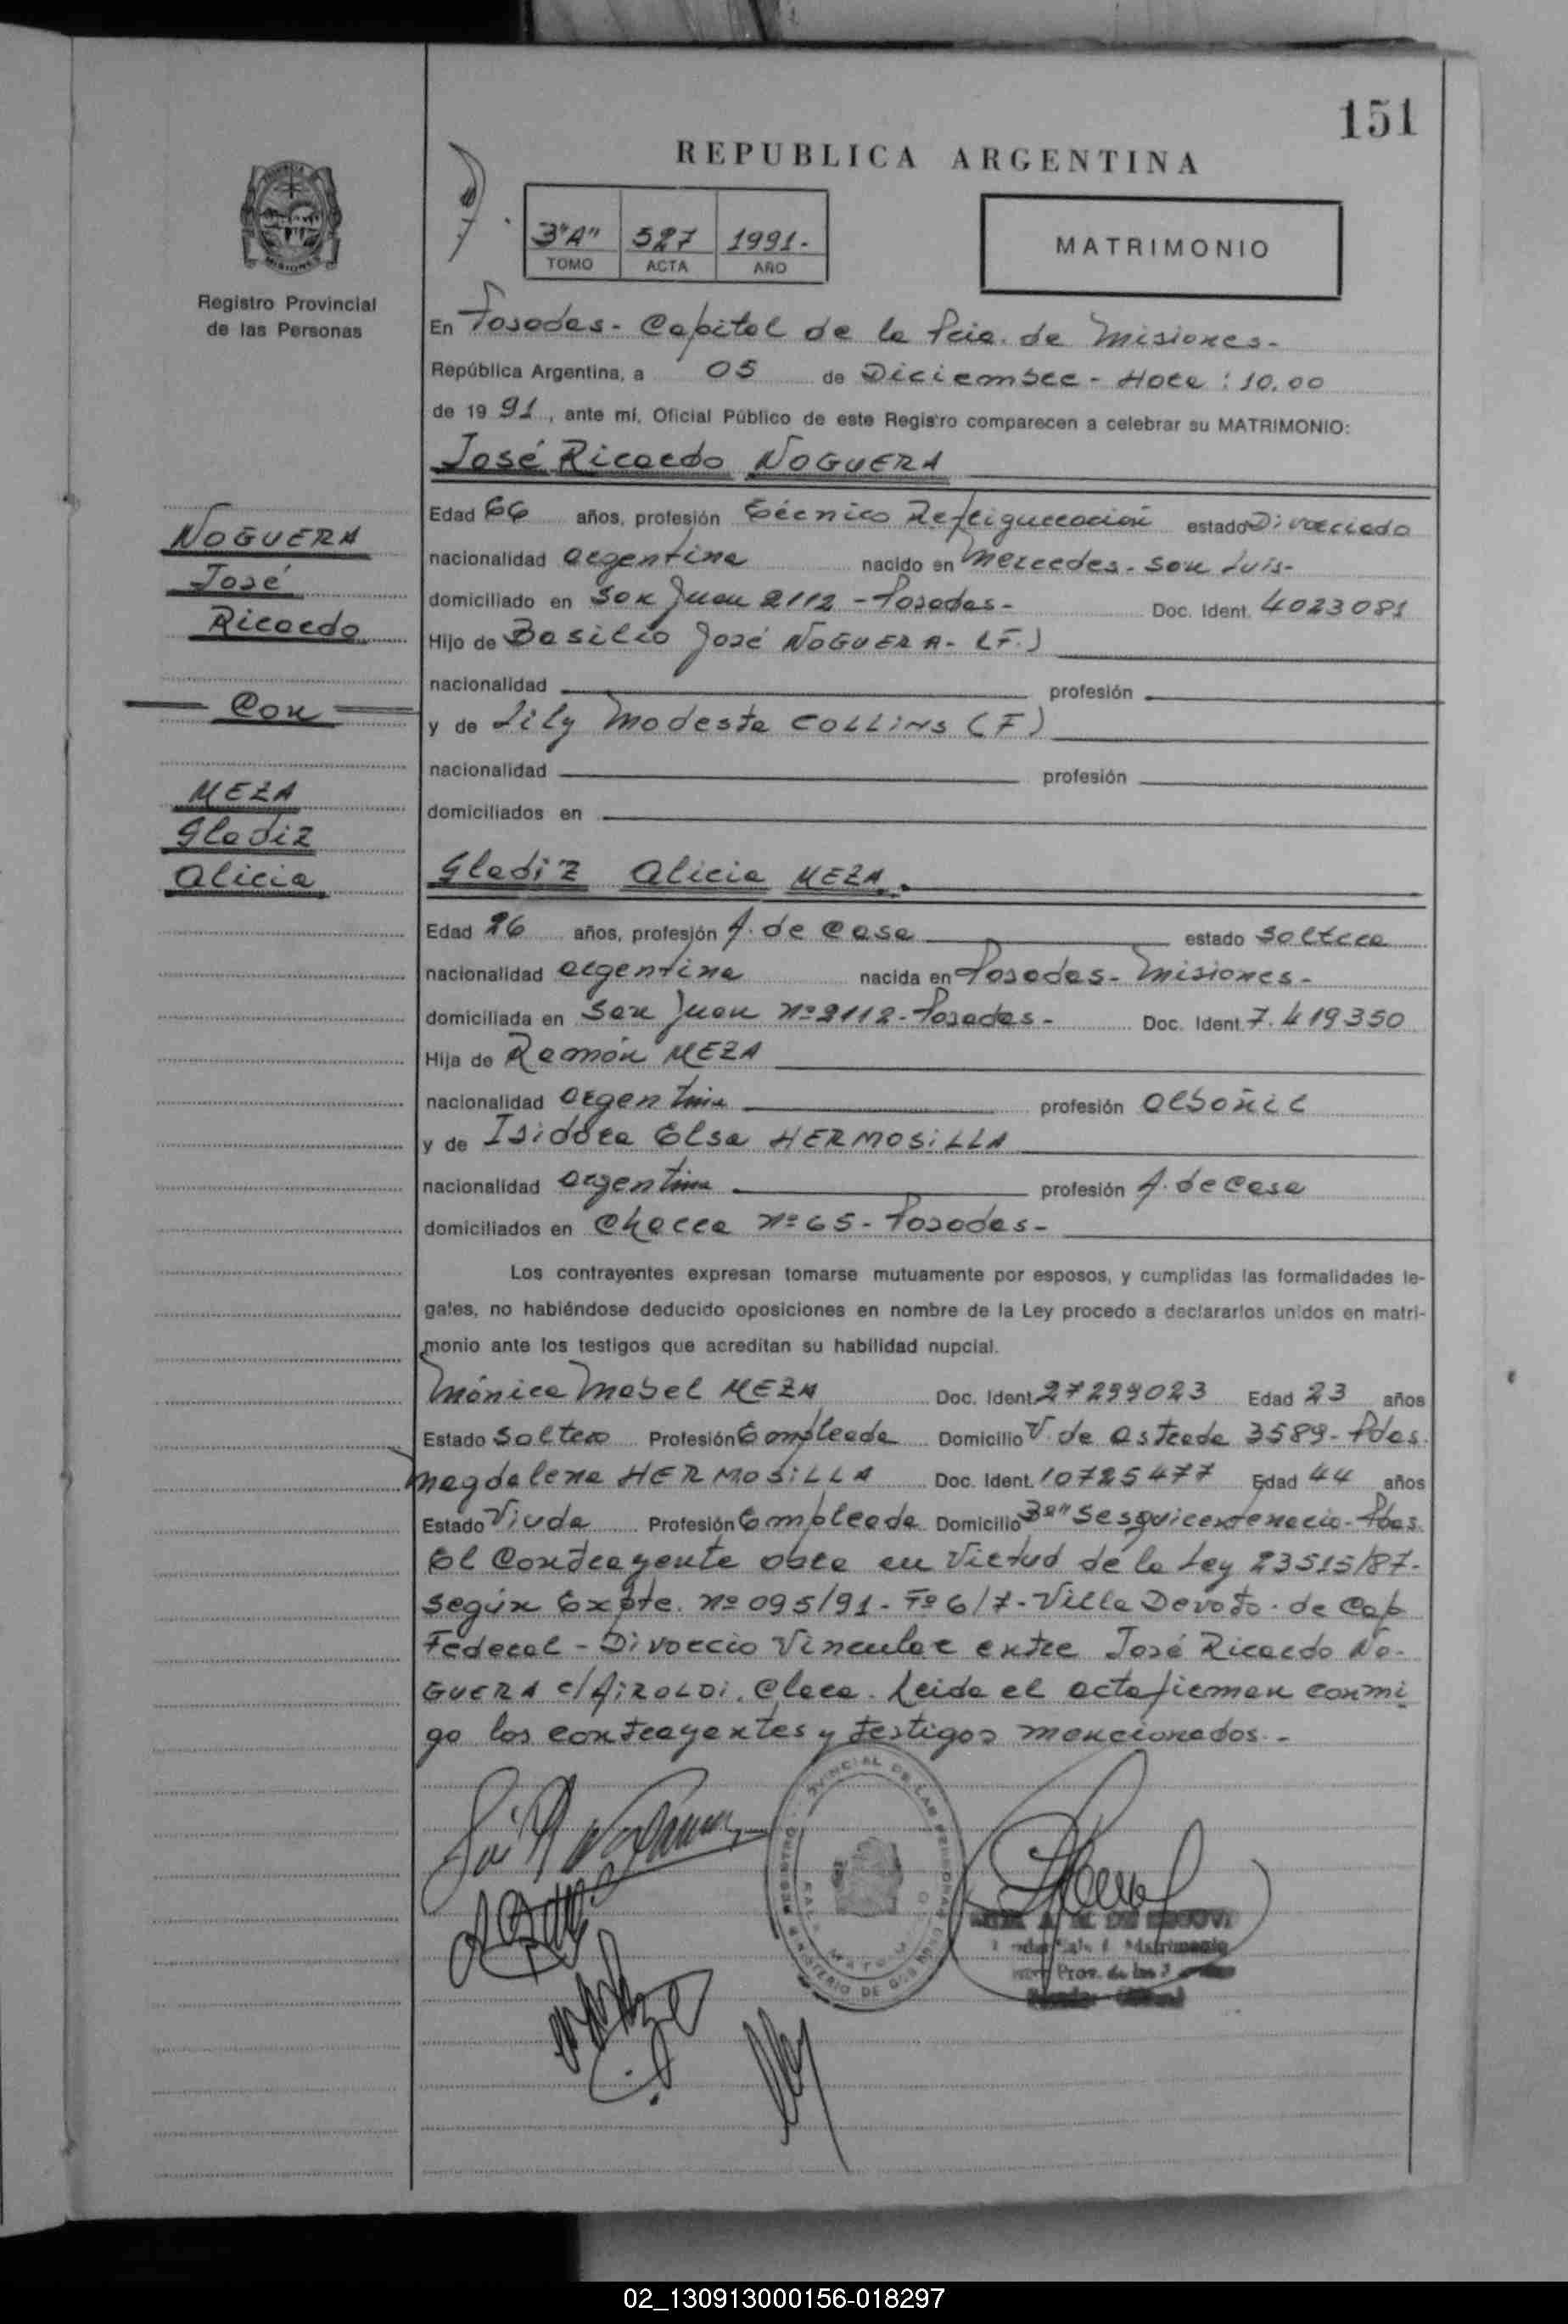 151
REPUBLICA ARGENTINA
3"A" 527 1991.-
TOMO ACTA AÑO
MATRIMONIO
Registro Provincial
de las Personas
En Posadas - Capital de la Pcia. de Misiones-
República Argentina, a 05 de Diciembre - Hora: 10.00
de 1991, ante mí, Oficial Público de este Registro comparecen a celebrar su MATRIMONIO:
José Ricardo NOGUERA
NOGUERA
José
Ricardo
Con
MEZA
Gladiz
Alicia
Edad 66 años, profesión Técnico Refrigueración estado Divorciado
nacionalidad argentina nacido en Mercedes - San Luis-
domiciliado en San Juan 2112 - Posadas- Doc. Ident. 4023081
Hijo de Basilio José NOGUERA - (F.)
nacionalidad profesión
y de Lily Modesta COLLINS (F)
nacionalidad profesión
domiciliados en
Gladiz Alicia MEZA.
Edad 26 años, profesión A. de Casa estado soltera
nacionalidad argentina nacida en Posadas - Misiones-
domiciliada en San Juan Nº 2112 - Posadas- Doc. Ident. 7.419350
Hija de Ramón MEZA
nacionalidad argentina profesión albañil
y de Isidora Elsa HERMOSILLA
nacionalidad argentina profesión A. de Casa
domiciliados en Chacra Nº 65 - Posadas-
Los contrayentes expresan tomarse mutuamente por esposos, y cumplidas las formalidades le-
gales, no habiéndose deducido oposiciones en nombre de la Ley procedo a declararlos unidos en matri-
monio ante los testigos que acreditan su habilidad nupcial.
Mónica Mabel MEZA Doc. Ident. 27299023 Edad 23 años
Estado Soltera Profesión Empleada Domicilio V. de Astrada 3589 - Pdas.
Magdalena HERMOSILLA Doc. Ident. 10725477 Edad 44 años
Estado Viuda Profesión Empleada Domicilio Bº Sesquicentenario - Pdas.
El Contrayente obra en Virtud de la Ley 23515/87-
según Expte. Nº 095/91 - Fº 6/7 - Villa Devoto - de Cap
Federal - Divorcio Vincular entre José Ricardo NO-
GUERA c/ AIROLDI, Clara. Leida el acta firman conmi
go los contrayentes y testigos mencionados.-
02_130913000156-018297